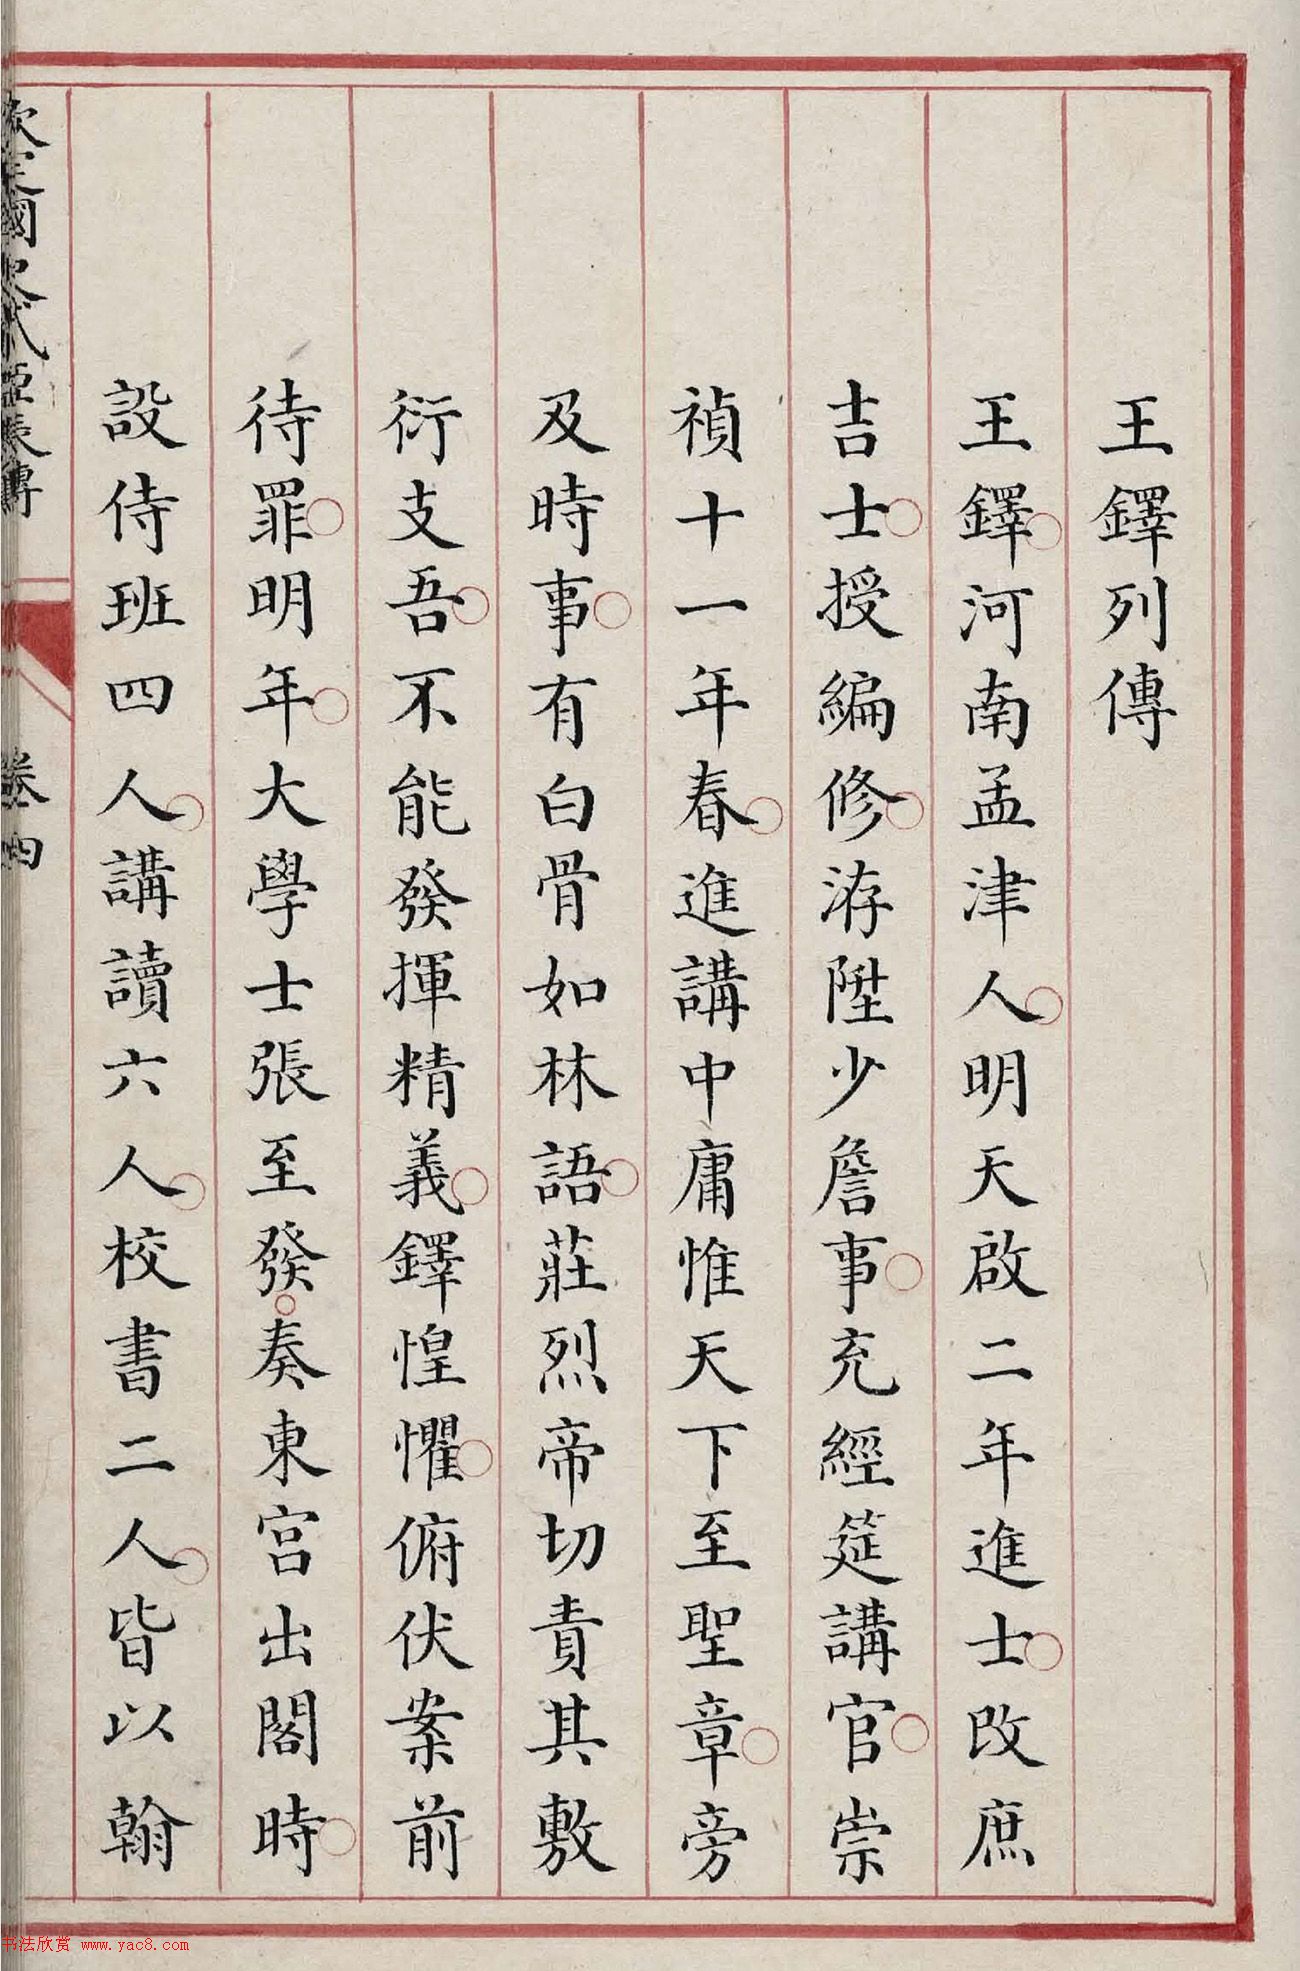 王鐸列傳
王鐸河南孟津人明天啟二年進士改庶
吉士授編修洊陞少詹事充經筵講官崇
禎十一年春進講中庸惟天下至聖章旁
及時事有白骨如林語莊烈帝切責其敷
衍支吾不能發揮精義鐸惶懼俯伏案前
待罪明年大學士張至發奏東宮出閣時
設侍班四人講讀六人校書二人皆以翰
欽定國史貳臣表傳
卷四
书法欣赏 www.yac8.com